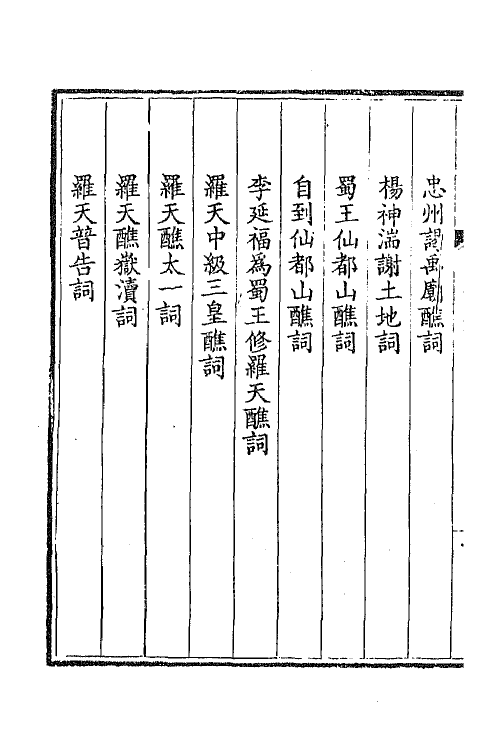 忠州謁禹廟醮詞
楊神湍謝土地詞
蜀王仙都山醮詞
自到仙都山醮詞
李延福為蜀王修羅天醮詞
羅天中級三皇醮詞
羅天醮太一詞
羅天醮嶽瀆詞
羅天普告詞